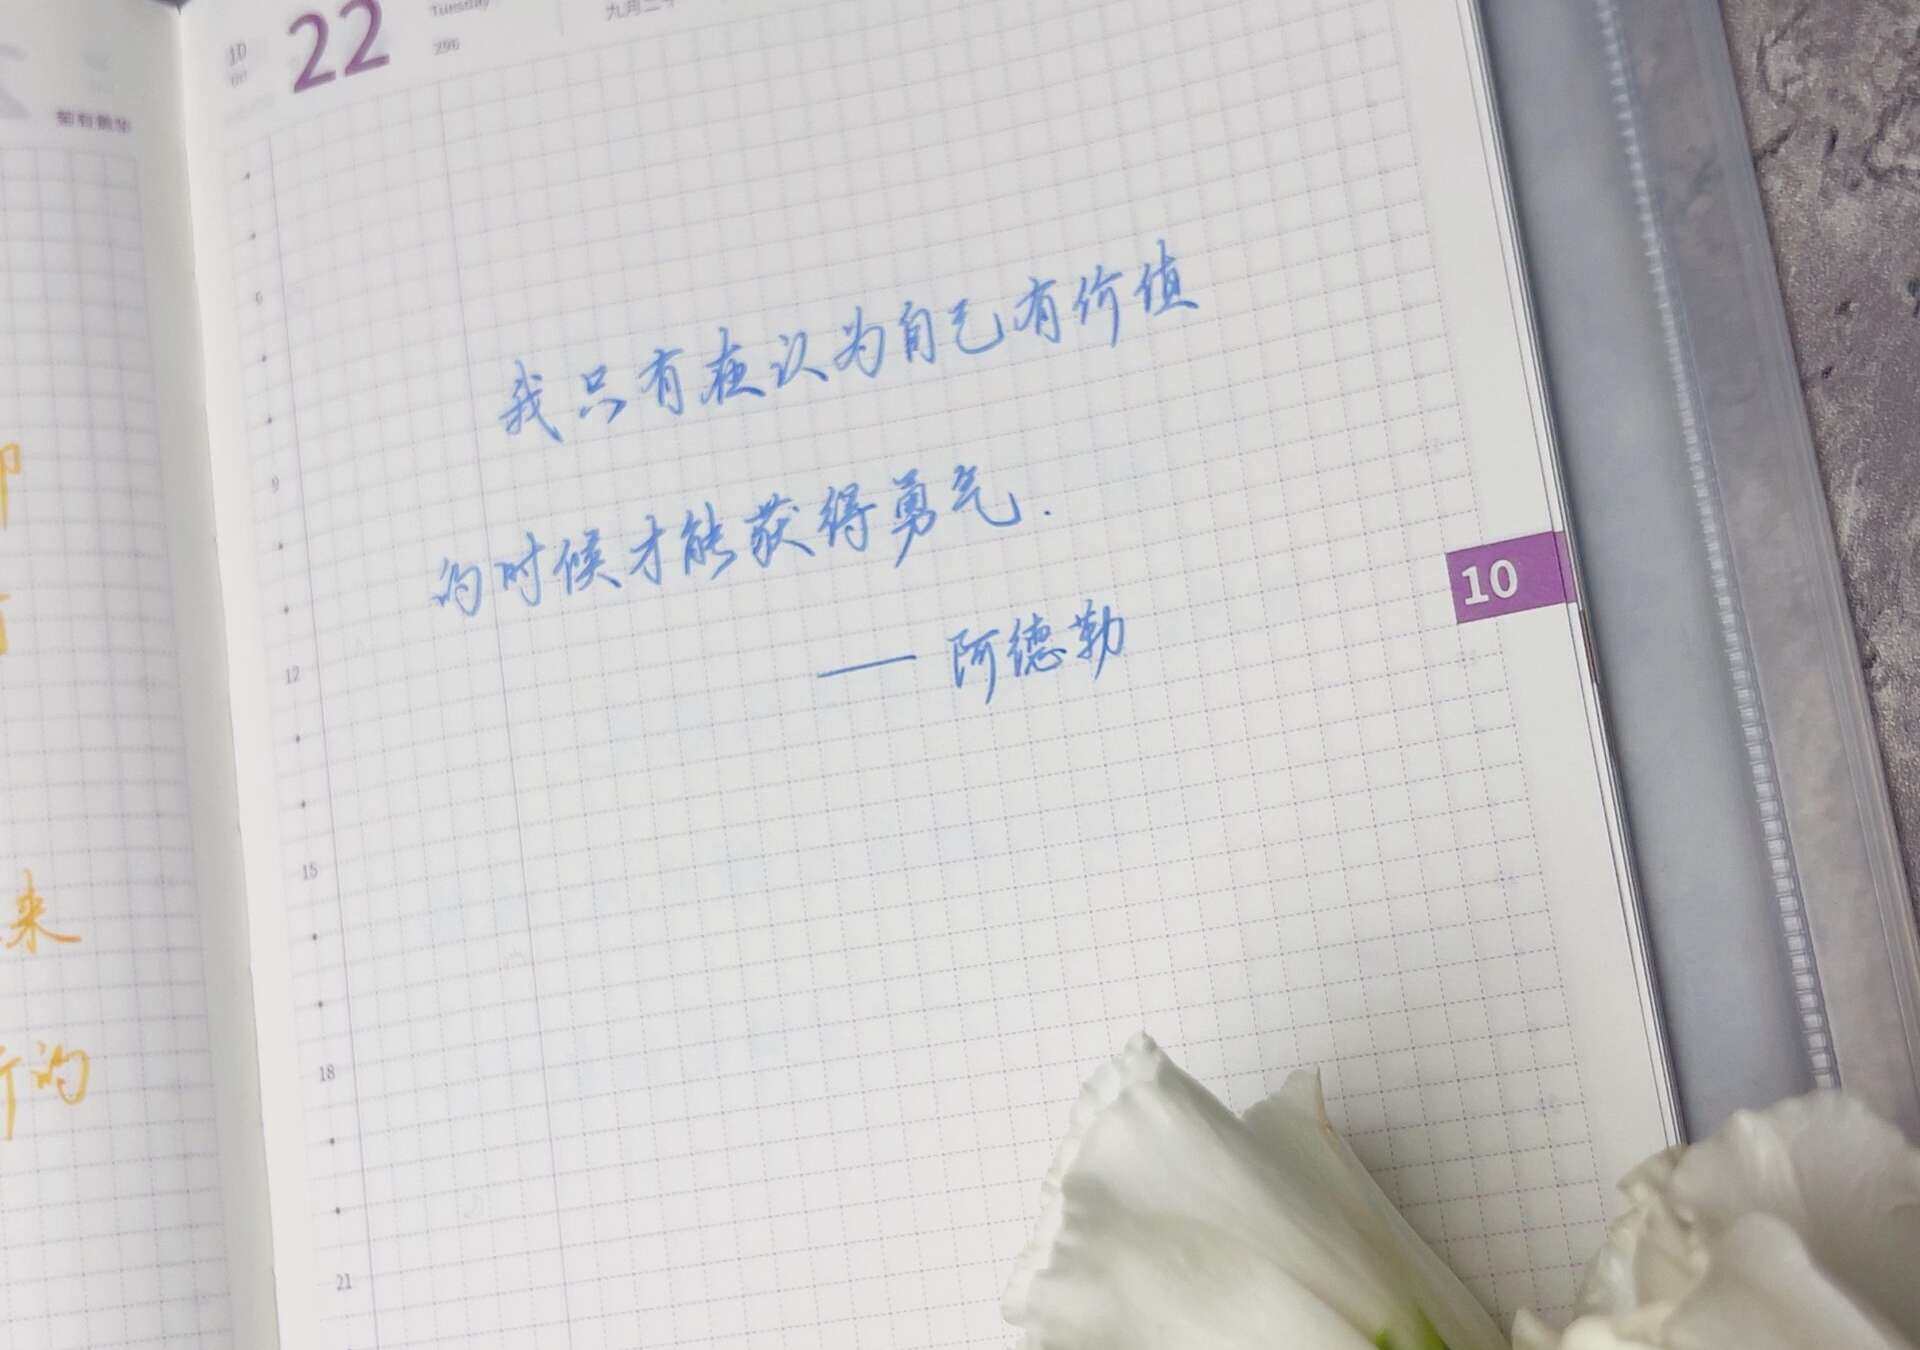 10
22
Tuesday
296
菊有黄华
6
9
12
15
18
21
我只有在认为自己有价值
的时候才能获得勇气.
—— 阿德勒
10
来
的